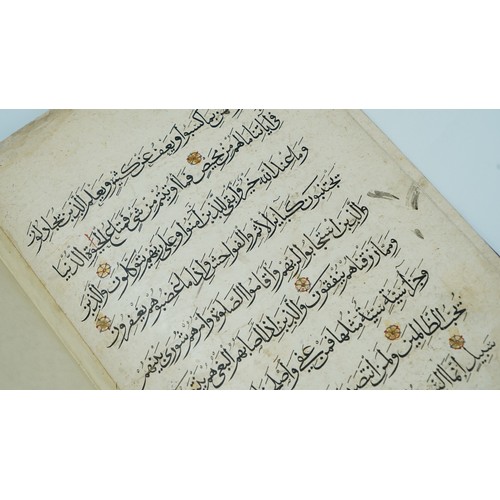 بما كسبوا ويعف عن كثير ويعلم الذين يجادلون
في آياتنا ما لهم من محيص فما أوتيتم من شئ فمتاع الحيوة الدنيا
وما عند الله خير وأبقى للذين آمنوا وعلى ربهم يتوكلون والذين
يجتنبون كبائر الاثم والفواحش وإذا ما غضبوا هم يغفرون
والذين استجابوا لربهم وأقاموا الصلوة وأمرهم شورى بينهم
ومما رزقناهم ينفقون والذين إذا أصابهم البغي هم
وجزاء سيئة سيئة مثلها فمن عفى
يحب الظالمين ولمن
سبيل إنما